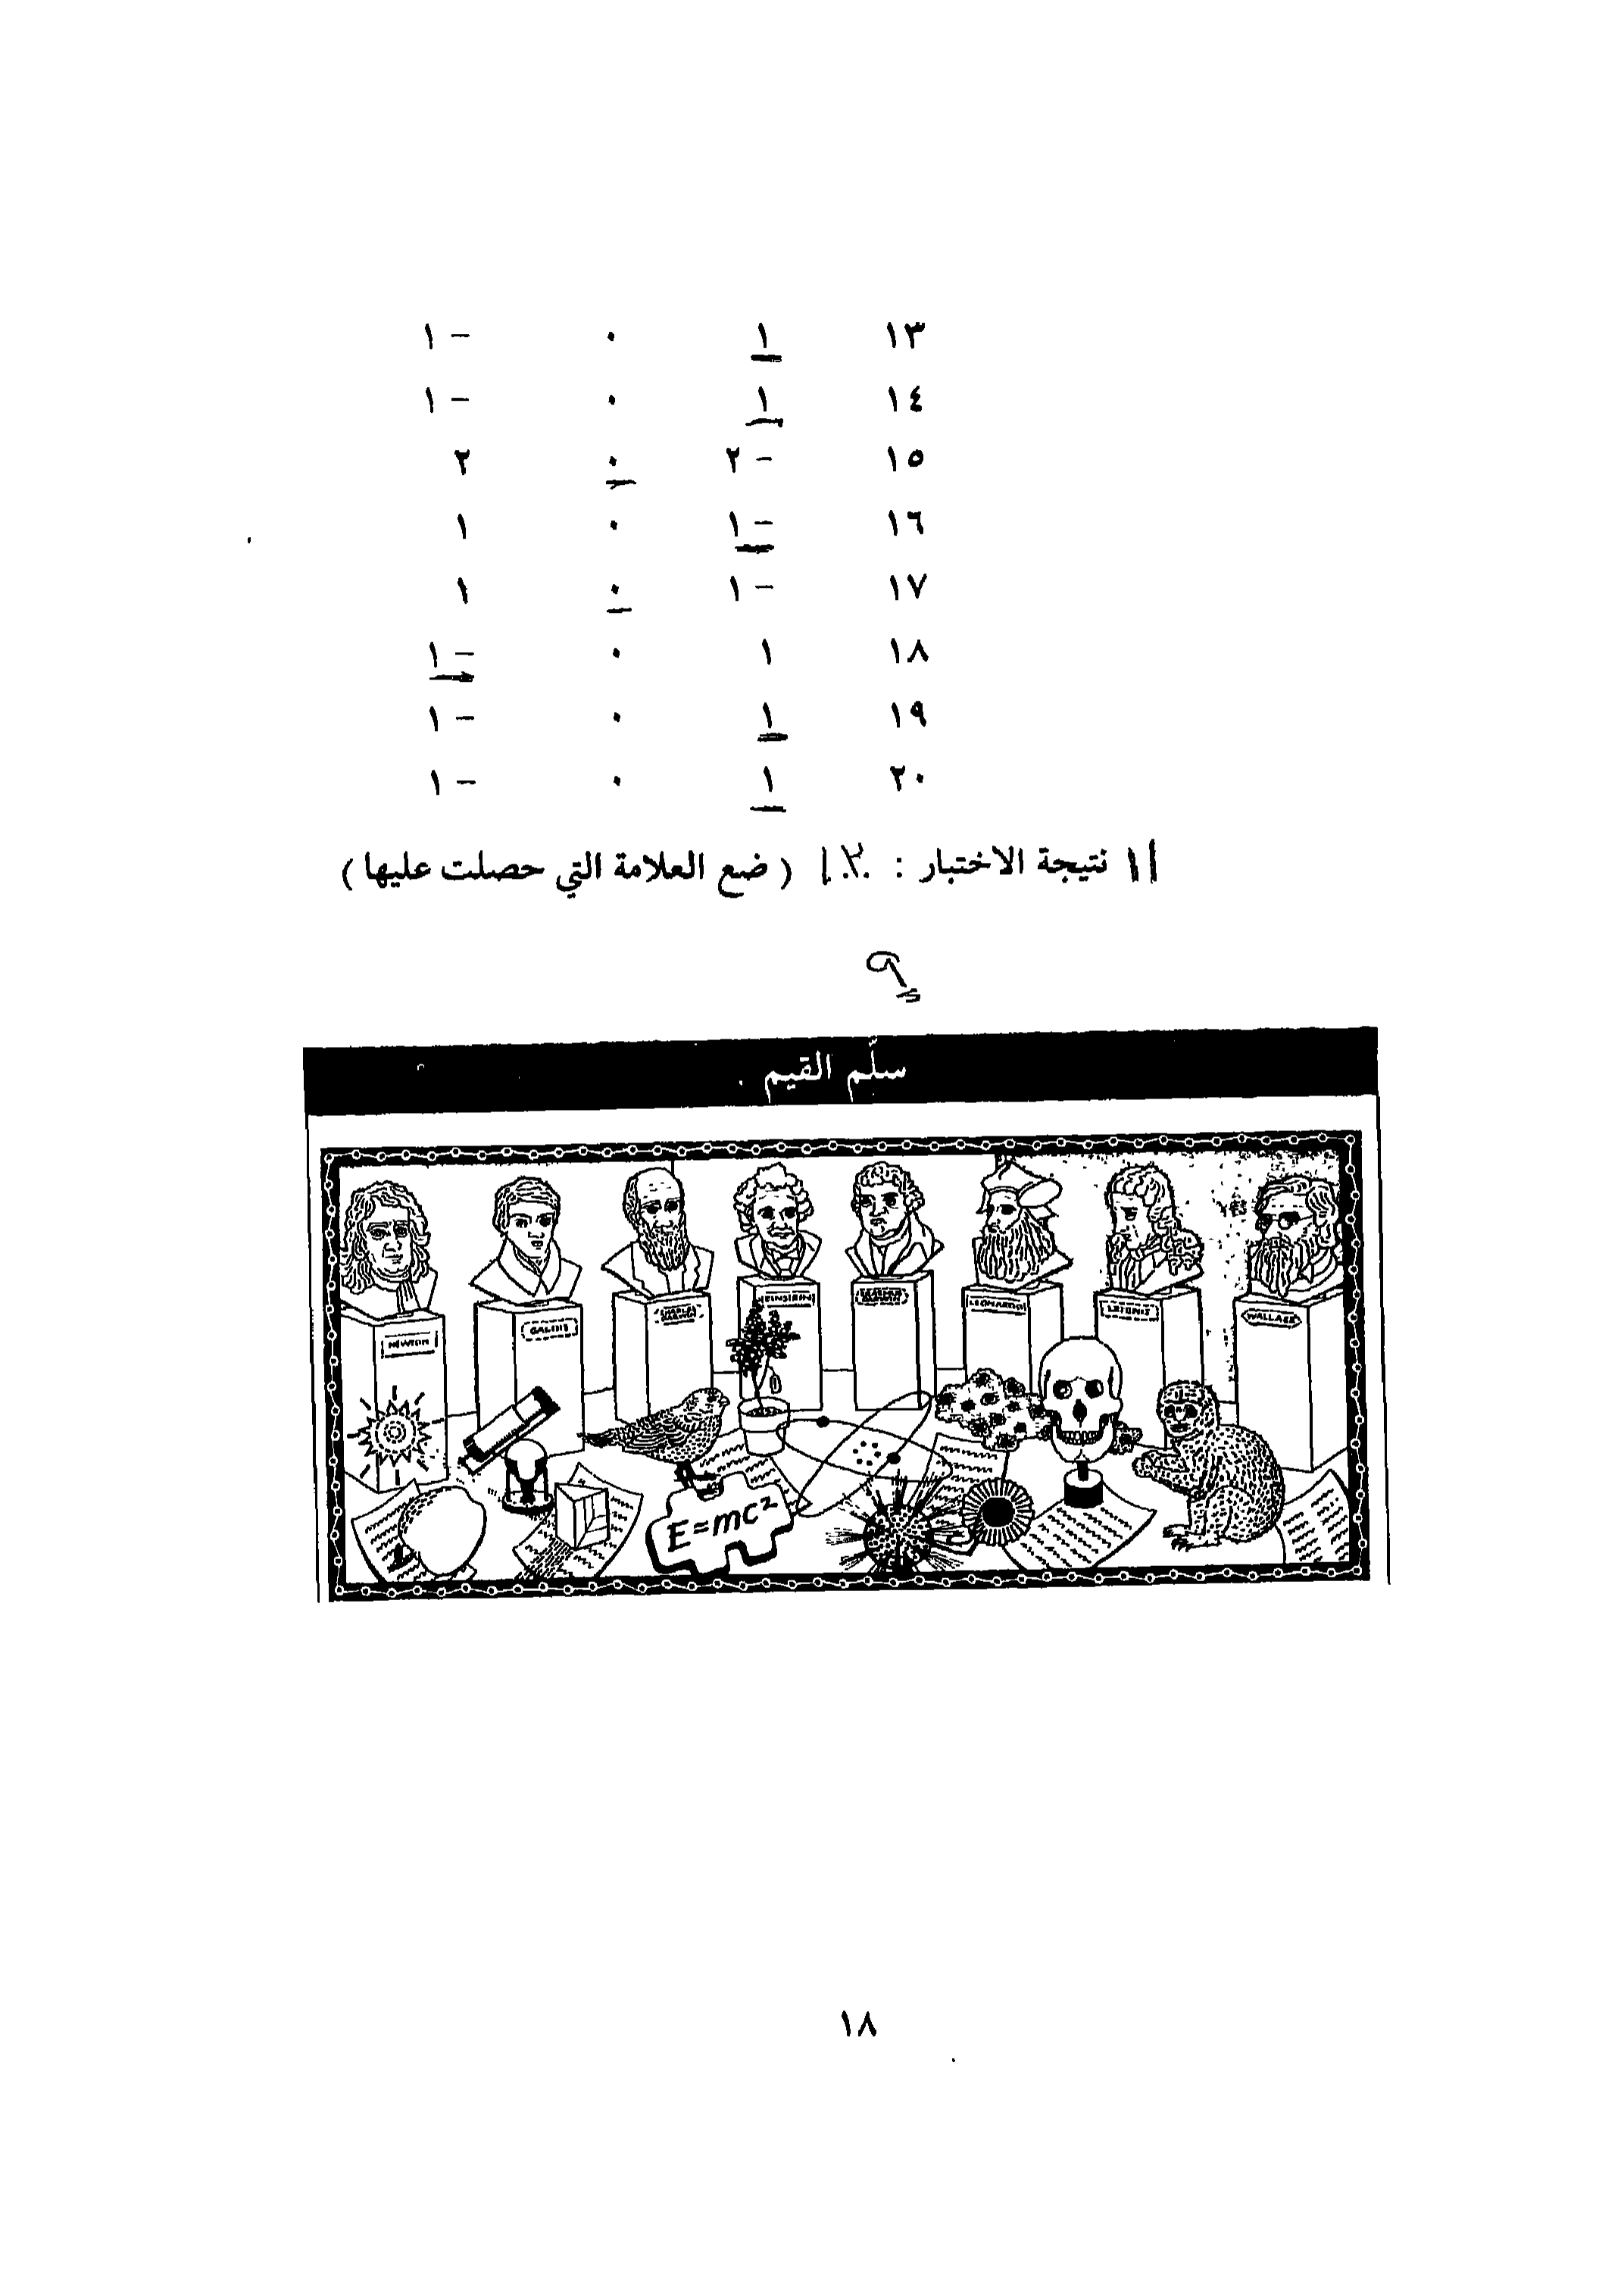 ١٣ ١ ٠ -١
١٤ ١ ٠ -١
١٥ -٢ ٠ ٢
١٦ -١ ٠ ١
١٧ -١ ٠ ١
١٨ ١ ٠ -١
١٩ ١ ٠ -١
٢٠ ١ ٠ -١
نتيجة الاختبار : ( ضع العلامة التي حصلت عليها )
سلّم القيم
NEWTON
GALOIS
CHARLES DARWIN
EINSTEIN
LEONARDO
LEIBNIZ
WALLACE
E=mc²
١٨